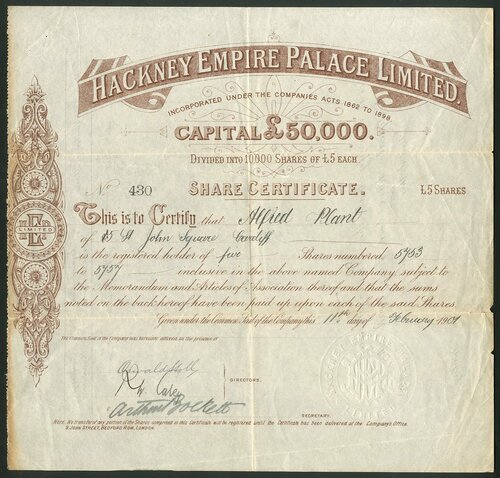 HACKNEY EMPIRE PALACE LIMITED.
INCORPORATED UNDER THE COMPANIES ACTS 1862 TO 1898.
CAPITAL £50,000.
DIVIDED INTO 10000 SHARES OF £5 EACH.
No 430 SHARE CERTIFICATE. £5 SHARES
This is to Certify that Alfred Plant
of 15 St John Square Cardiff
is the registered holder of five Shares numbered 5753
to 5757 inclusive in the above named Company, subject to
the Memorandum and Articles of Association thereof and that the sums
noted on the back hereof have been paid up upon each of the said Shares.
Given under the Common Seal of the Company this 11th day of February 1901
The Common Seal of the Company was hereunto affixed in the presence of
Oswald Stoll
DIRECTORS.
SECRETARY.
Note. No transfer of any portion of the Shares comprised in this Certificate will be registered until the Certificate has been delivered at the Company's Office.
9 JOHN STREET, BEDFORD ROW, LONDON.
E
LIMITED